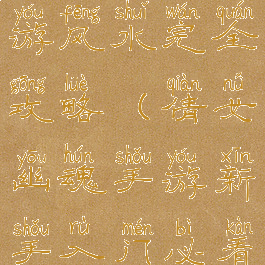 yóu fēng shuǐ wán quán
游风水完全
gōng lüè qiàn nǚ
攻略（倩女
yōu hún shǒu yóu xīn
幽魂手游新
shǒu rù mén bì kàn
手入门必看